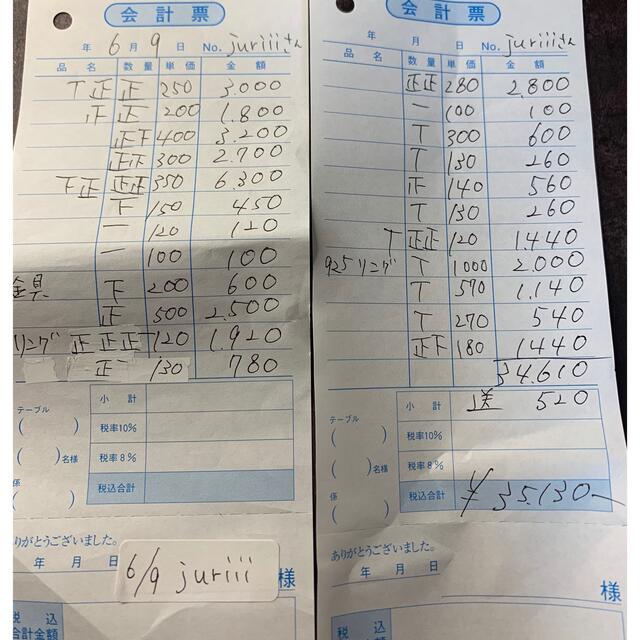 会計票
年 6月 9日 No. juriiiさん
品名 数量 単価 金額
T正 正 250 3.000
正 正 200 1.800
正下 400 3.200
正正 300 2.700
下正 正正 350 6.300
下 150 450
一 120 120
一 100 100
金具 下 200 600
正 500 2.500
リング 正正正T 120 1.920
正一 130 780
小計
テーブル
( )
税率10%
( )名様
税率8%
係
( )
税込合計
りがとうございました。
年 月 日
6/9 juriii
様
税込
合計金額
会計票
年 月 日 No. juriiiさん
品名 数量 単価 金額
正正 280 2.800
一 100 100
T 300 600
T 130 260
正 140 560
T 130 260
T 正正 120 1.440
925リング T 1000 2.000
T 570 1.140
T 270 540
正下 180 1440
34.610
小計 送 520
テーブル
( )
税率10%
( )名様
税率8%
係
( )
税込合計 ¥35.130-
ありがとうございました。
年 月 日
様
税込
合計金額